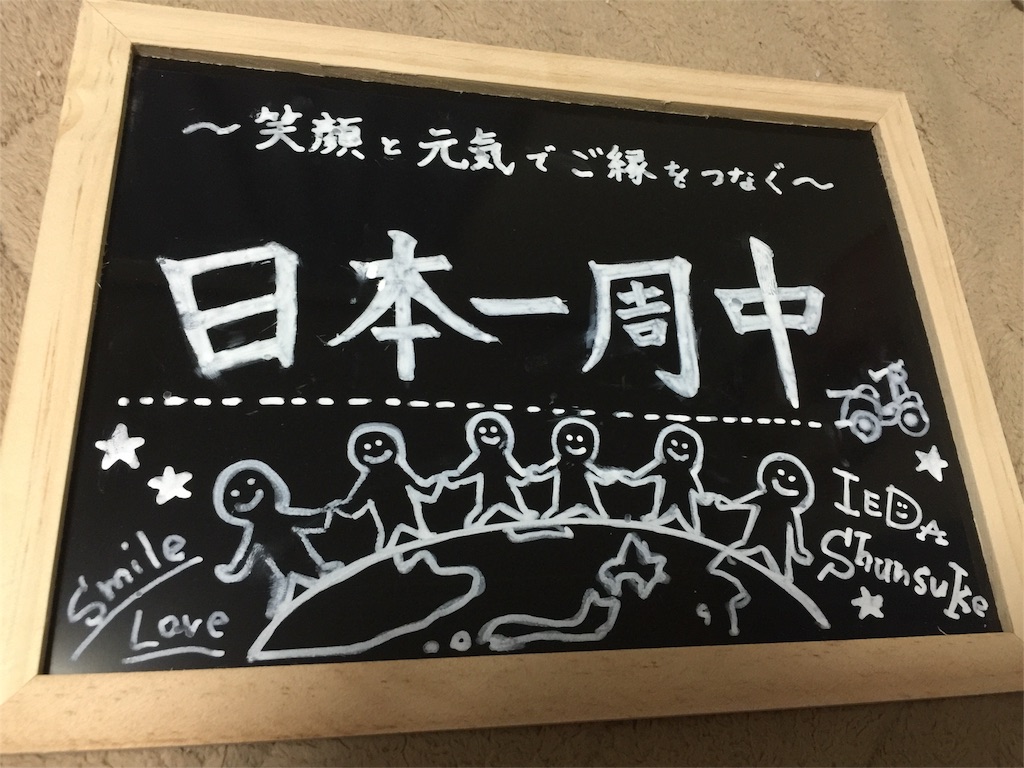 ～笑顔と元気でご縁をつなぐ～
日本一周中
Smile
Love
IEDA
Shunsuke